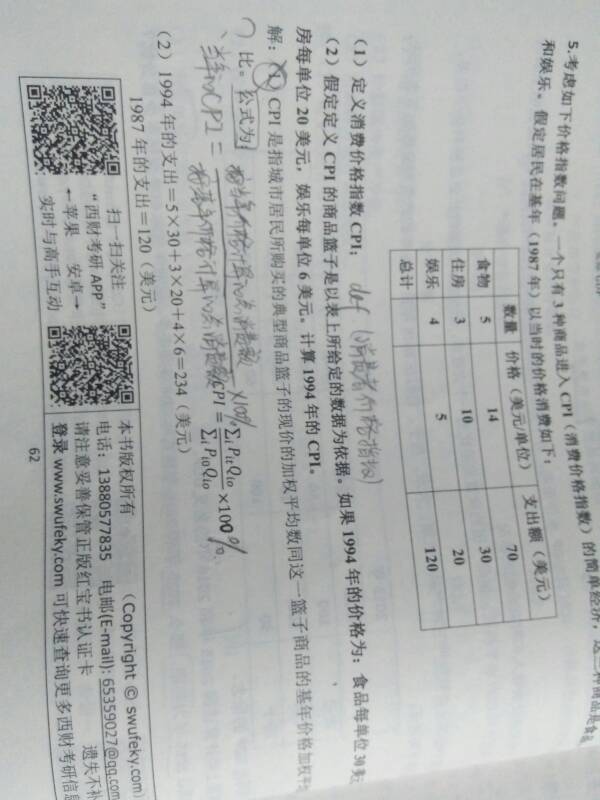 5.考虑如下价格指数问题。一个只有3种商品进入CPI（消费价格指数）的简单经济，这三种商品是食品
和娱乐。假定居民在基年（1987年）以当时的价格消费如下：
数量 价格（美元/单位） 支出额（美元）
食物 5 14 70
住房 3 10 30
娱乐 4 5 20
总计 120
（1）定义消费价格指数CPI； def (消费者价格指数)
（2）假定定义CPI的商品篮子是以表上所给定的数据为依据。如果1994年的价格为：食品每单位30美元
房每单位20美元，娱乐每单位6美元。计算1994年的CPI。
解：（1）CPI是指城市居民所购买的典型商品篮子的现价的加权平均数同这一篮子商品的基年价格加权平
比。公式为：
当年CPI= ×100%
CPI=∑ᵢPᵢₜQᵢ₀/∑ᵢPᵢ₀Qᵢ₀×100%
（2）1994年的支出=5×30+3×20+4×6=234（美元）
1987年的支出=120（美元）
扫一扫关注
“西财考研APP”
←苹果 安卓→
实时与高手互动
本书版权所有 （Copyright © swufeky.com）
电话：13880577835 电邮(E-mail): 65359027@qq.com
请注意妥善保管正版红宝书认证卡 遗失不补
登录www.swufeky.com可快速查询更多西财考研信息
62